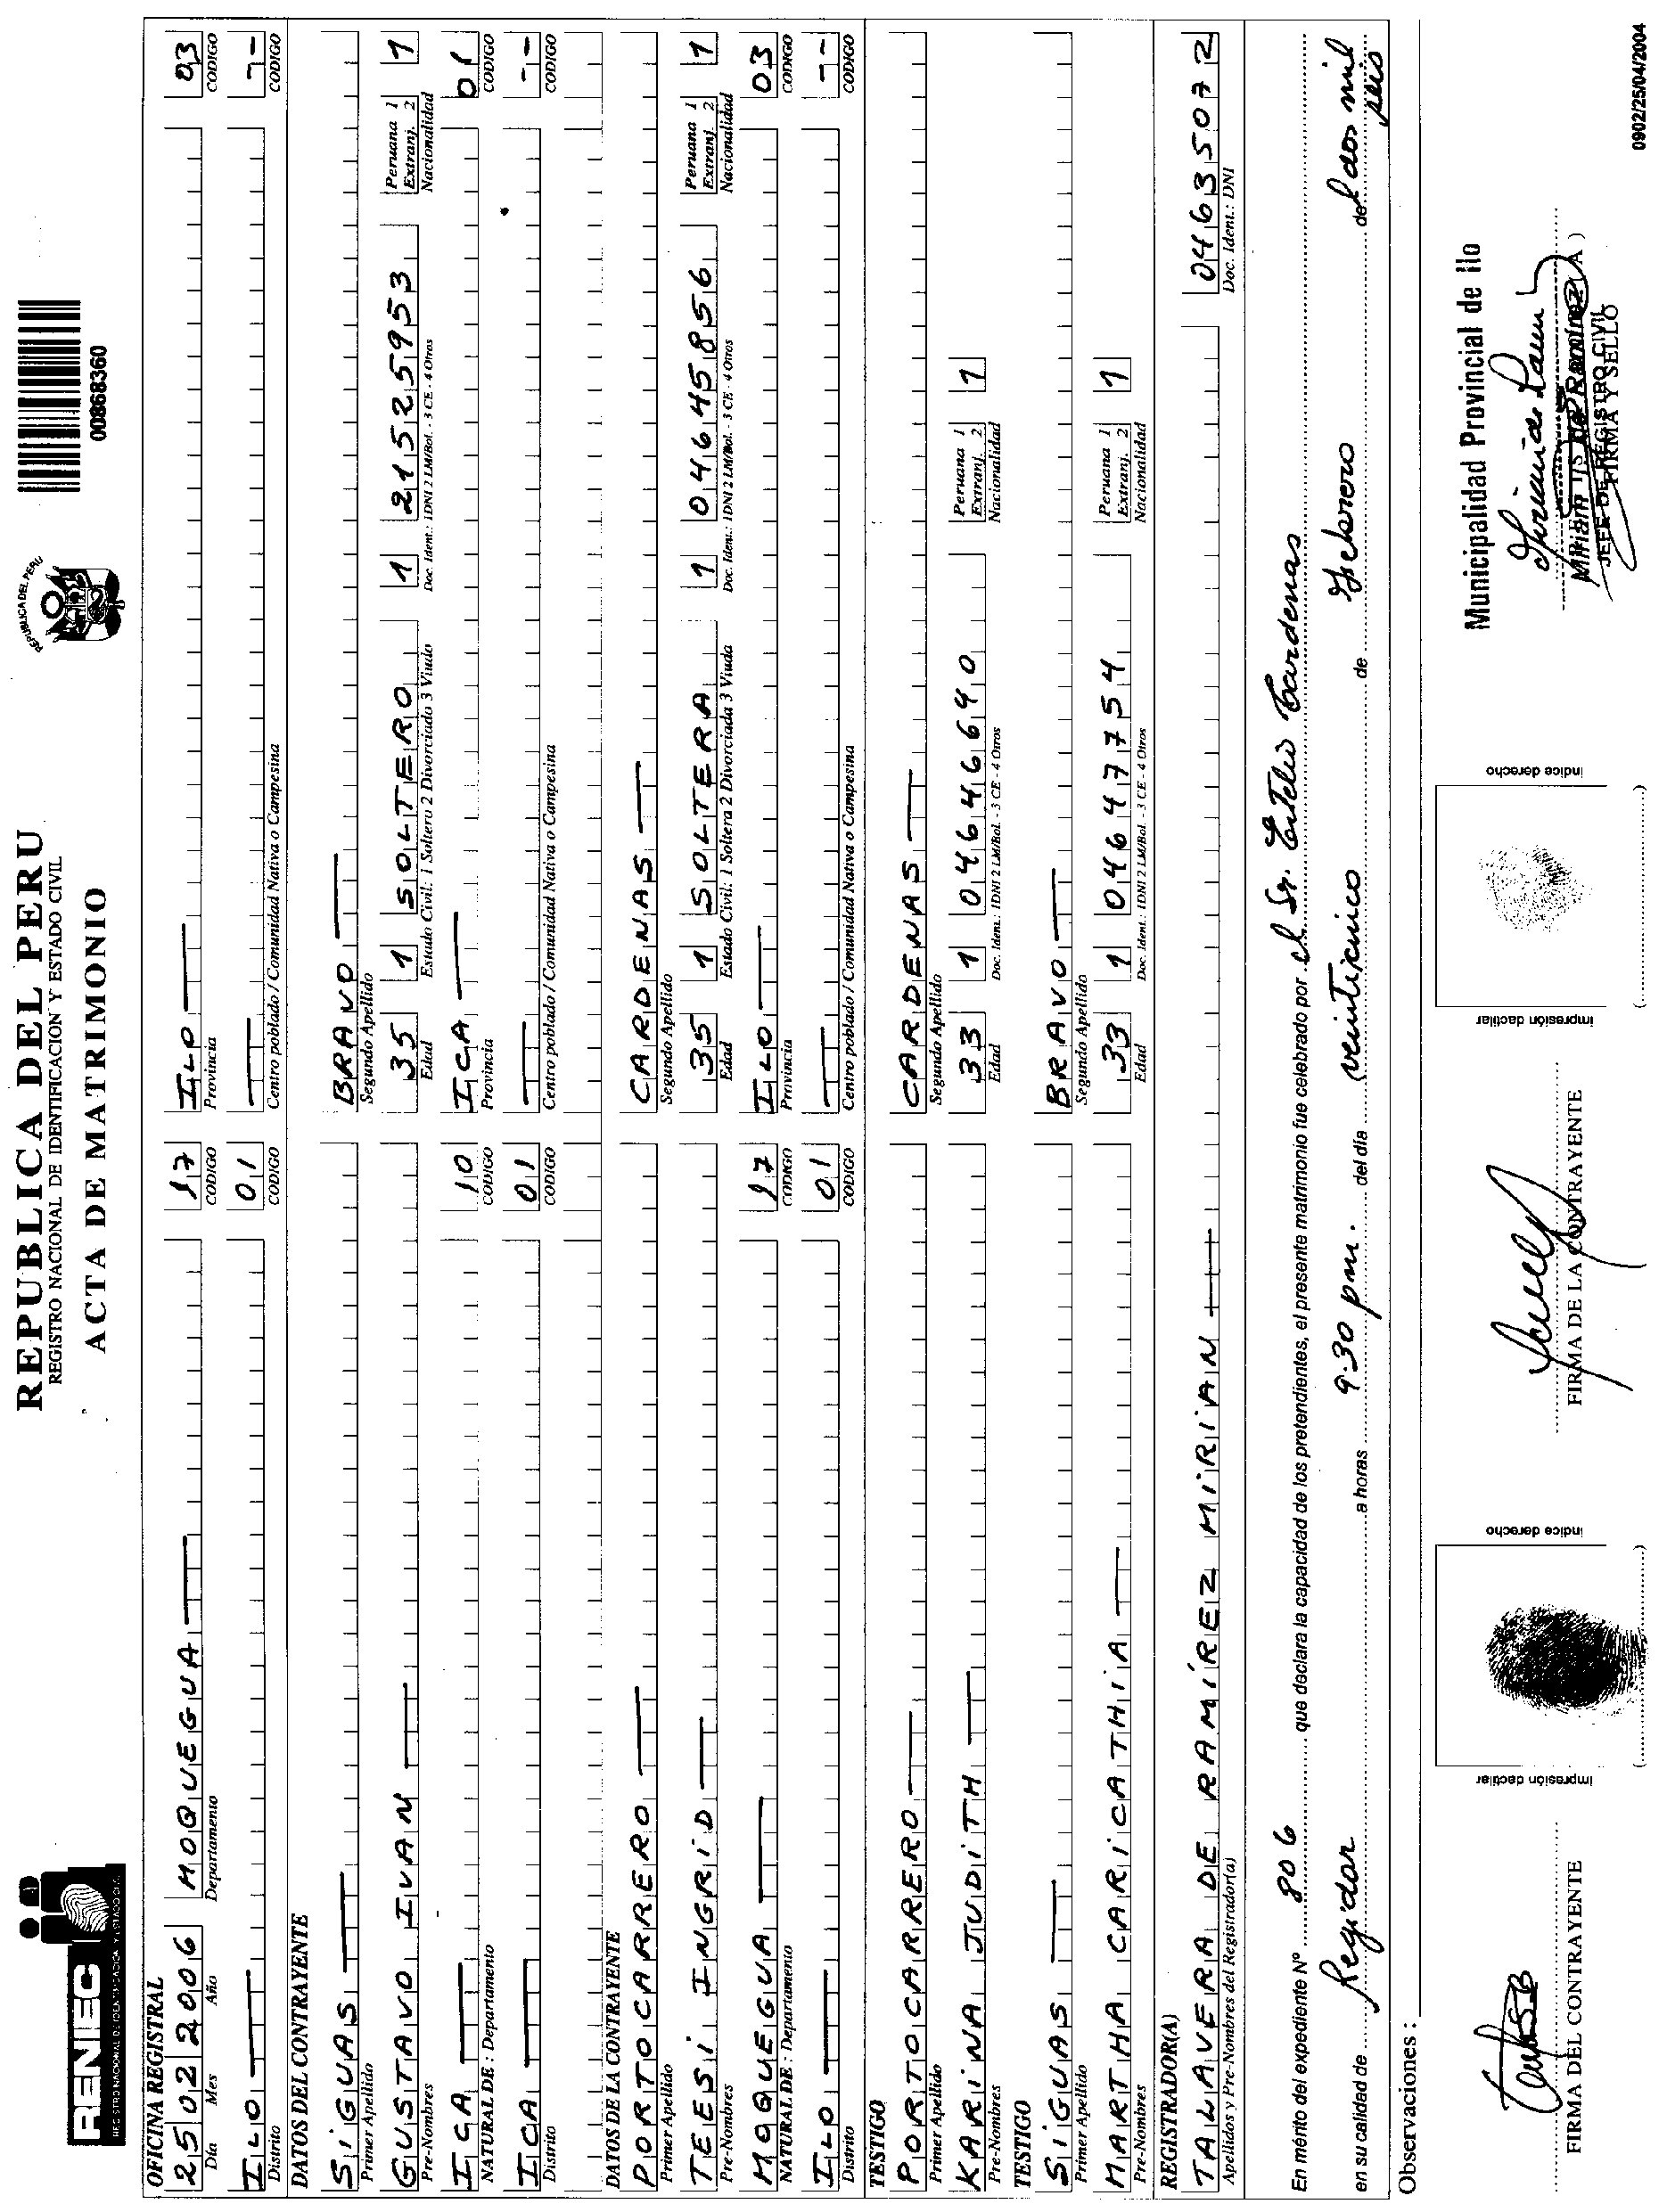 RENIEC
REGISTRO NACIONAL DE IDENTIFICACION Y ESTADO CIVIL
REPUBLICA DEL PERU
REGISTRO NACIONAL DE IDENTIFICACION Y ESTADO CIVIL
ACTA DE MATRIMONIO
REPUBLICA DEL PERU
00868360
OFICINA REGISTRAL
25 02 2006 MOQUEGUA 17 ILO 03
Día Mes Año Departamento CODIGO Provincia CODIGO
ILO 01 --
Distrito CODIGO Centro poblado / Comunidad Nativa o Campesina CODIGO
DATOS DEL CONTRAYENTE
SIGUAS BRAVO
Primer Apellido Segundo Apellido
GUSTAVO IVAN 35 1 SOLTERO 1 21525953 Peruana 1 Extranj. 2 1
Pre-Nombres Edad Estado Civil: 1 Soltero 2 Divorciado 3 Viudo Doc. Ident.: 1DNI 2 LM/Bol. - 3 CE - 4 Otros Nacionalidad
ICA 10 ICA 01
NATURAL DE : Departamento CODIGO Provincia CODIGO
ICA 01 --
Distrito CODIGO Centro poblado / Comunidad Nativa o Campesina CODIGO
DATOS DE LA CONTRAYENTE
PORTOCARRERO CARDENAS
Primer Apellido Segundo Apellido
TEESI INGRID 35 1 SOLTERA 1 04645856 Peruana 1 Extranj. 2 1
Pre-Nombres Edad Estado Civil: 1 Soltera 2 Divorciada 3 Viuda Doc. Ident.: 1DNI 2 LM/Bol. - 3 CE - 4 Otros Nacionalidad
MOQUEGUA 17 ILO 03
NATURAL DE : Departamento CODIGO Provincia CODIGO
ILO 01 --
Distrito CODIGO Centro poblado / Comunidad Nativa o Campesina CODIGO
TESTIGO
PORTOCARRERO CARDENAS
Primer Apellido Segundo Apellido
KARINA JUDITH 33 1 04646690 Peruana 1 Extranj. 2 1
Pre-Nombres Edad Doc. Ident.: 1DNI 2 LM/Bol. - 3 CE - 4 Otros Nacionalidad
TESTIGO
SIGUAS BRAVO
Primer Apellido Segundo Apellido
MARTHA CARICATHIA 33 1 04647754 Peruana 1 Extranj. 2 1
Pre-Nombres Edad Doc. Ident.: 1DNI 2 LM/Bol. - 3 CE - 4 Otros Nacionalidad
REGISTRADOR(A)
TALAVERA DE RAMÍREZ MIRIAN 04635072
Apellidos y Pre-Nombres del Registrador(a) Doc. Ident.: DNI
En mérito del expediente Nº 806 que declara la capacidad de los pretendientes, el presente matrimonio fue celebrado por el Sr. Cardenas
en su calidad de Regidor a horas 9:30 pm. del día veinticinco de Febrero de l dos mil seis
Observaciones :
Municipalidad Provincial de Ilo
JEFE DE REGISTRO CIVIL
FIRMA Y SELLO
FIRMA DEL CONTRAYENTE
impresión dactilar índice derecho
FIRMA DE LA CONTRAYENTE
impresión dactilar índice derecho
0902/25/04/2004